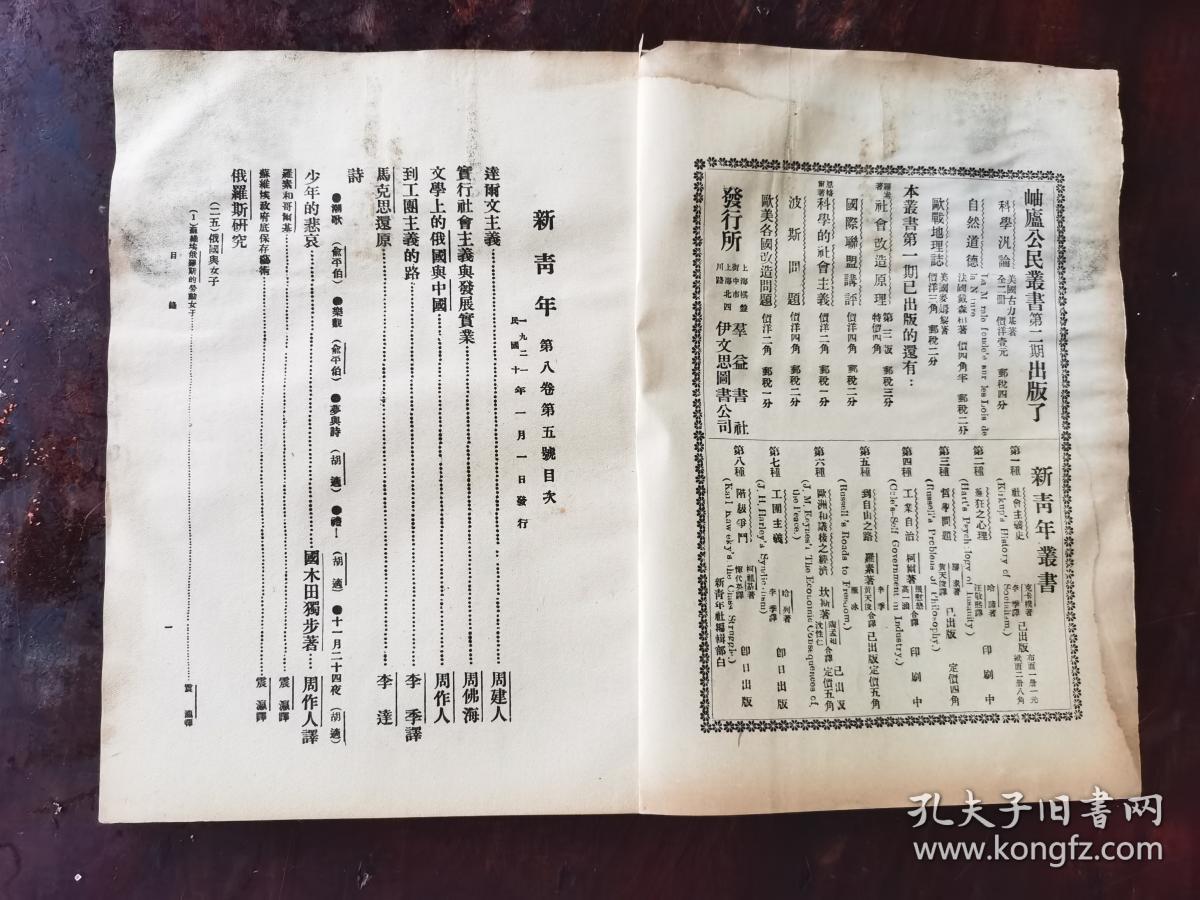 岫廬公民叢書第二期出版了
科學汎論 美國古力基著 全二冊 價洋壹元 郵稅四分
自然道德 La Morale fondée sur les Lois de la Nature 法國戴森柏著 價四角半 郵稅二分
歐戰地理誌 價洋三角 郵稅二分
本叢書第一期已出版的還有：
社會改造原理 羅素著 第三版 特價四角 郵稅三分
國際聯盟講評 價洋四角 郵稅二分
科學的社會主義 恩格爾著 價洋二角 郵稅一分
波斯問題 價洋四角 郵稅二分
歐美各國改造問題 價洋二角 郵稅一分
發行所 上海棋盤街中市 羣益書社
上海北四川路 伊文思圖書公司
新青年叢書
第一種 社會主義史 克卡樸著 李季譯 已出版 布面一册一元 紙面二册八角
(Kirkup's History of Socialism.)
第二種 瘋狂之心理 哈譜著 印刷中
(Hart's Psychology of Insanity.)
第三種 哲學問題 羅素著 黃天俊譯 已出版 定價四角
(Russell's Problems of Philosophy.)
第四種 工業自治 柯爾著 合譯 印刷中
(Cole's Self Government on Industry.)
第五種 到自由之路 羅素著 李季 黃天俊 合譯 已出版 定價五角
(Russell's Roads to Freedom.)
第六種 歐洲和議後之經濟 坎斯著 陶孟和 沈性仁 合譯 已出版 定價五角
(J. M. Keynes's The Economic Consequences of the Peace.)
第七種 工團主義 哈列著 李季譯 即日出版
(J. H. Harley's Syndicalism)
第八種 階級爭鬥 柯祖基著 惲代英譯 即日出版
(Karl Kawtsky's the Class Struggle.)
新青年社編輯部白
新青年 第八卷第五號目次
一九二一年 民國十年 一月一日發行
達爾文主義 周建人
實行社會主義與發展實業 周佛海
文學上的俄國與中國 周作人
到工團主義的路 李季譯
馬克思還原 李達
詩
●潮歌（俞平伯） ●樂觀（俞平伯） ●夢與詩（胡適） ●禮！（胡適） ●十一月二十四夜（胡適）
少年的悲哀 國木田獨步著 周作人譯
羅素和哥爾基 震瀛譯
蘇維埃政府底保存藝術 震瀛譯
俄羅斯研究
（二五）俄國與女子
（1）蘇維埃俄羅斯的勞動女子 震瀛譯
目錄
一
孔夫子旧书网
www.kongfz.com